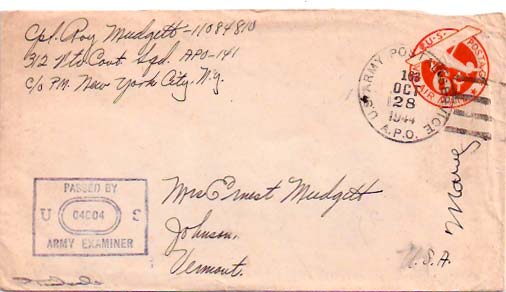 Cpl. Roy Mudgett - 11084810
312 Ftr Cont Sqd. APO-141
c/o P.M. New York City, N.Y.
U.S. POSTAGE
AIR MAIL
U.S. ARMY POSTAL SERVICE
OCT
28
1944
A.P.O.
PASSED BY
U 04604 S
ARMY EXAMINER
Mrs Ernest Mudgett
Johnson,
Vermont.
U.S.A.